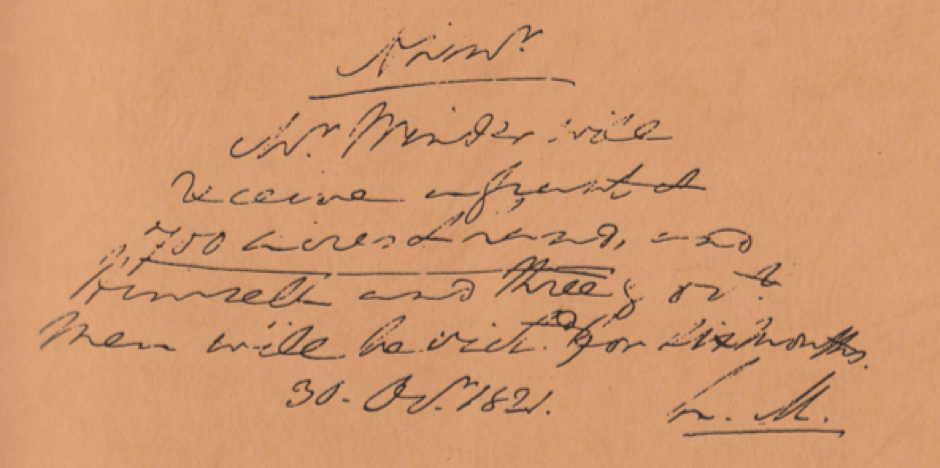 Answr.
Mr. Minder will
receive a grant of
700 acres of land, and
Himself and three govt.
Men will be vict.d for six months.
30. Octr. 1821.
L. M.